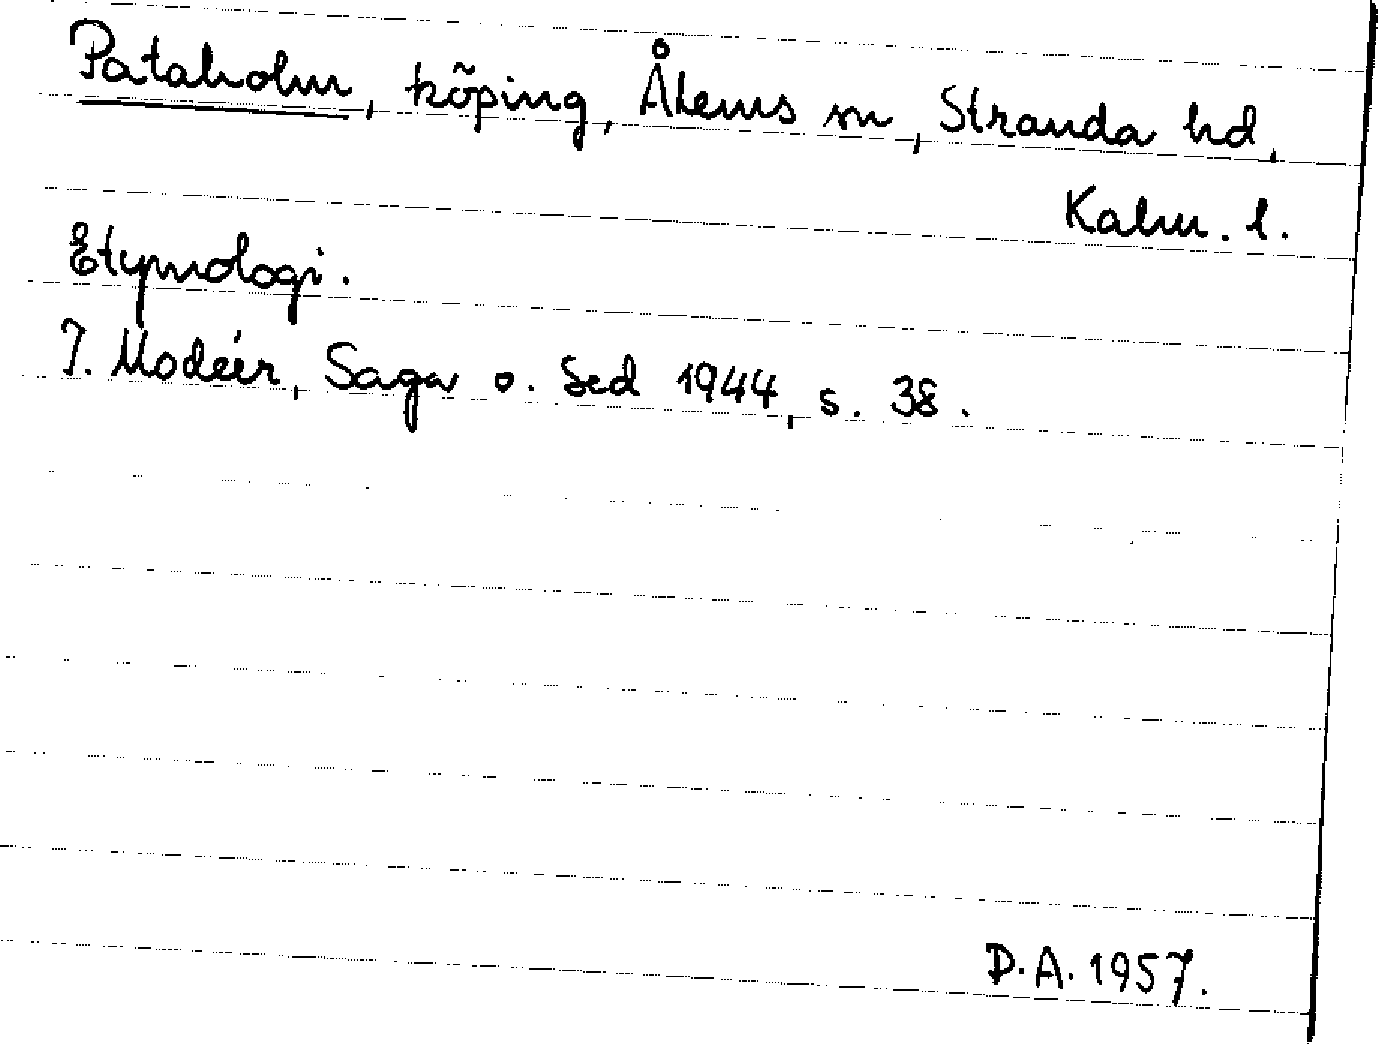 Pataholm, köping, Ålems sn, Stranda hd,
Kalm. l.
Etymologi.
I. Modéer, Saga o. Sed 1944, s. 38.
D.A. 1957.